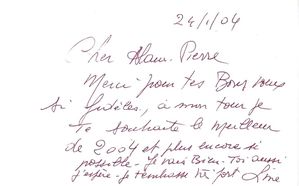 24/1/04
Cher Alain-Pierre
Merci pour tes Bons voeux
si fidèles, à mon tour je
Te souhaite le meilleur
de 2004 et plus encore si
possible - Je vais Bien. Toi aussi
j'espère - Je t'embrasse très fort